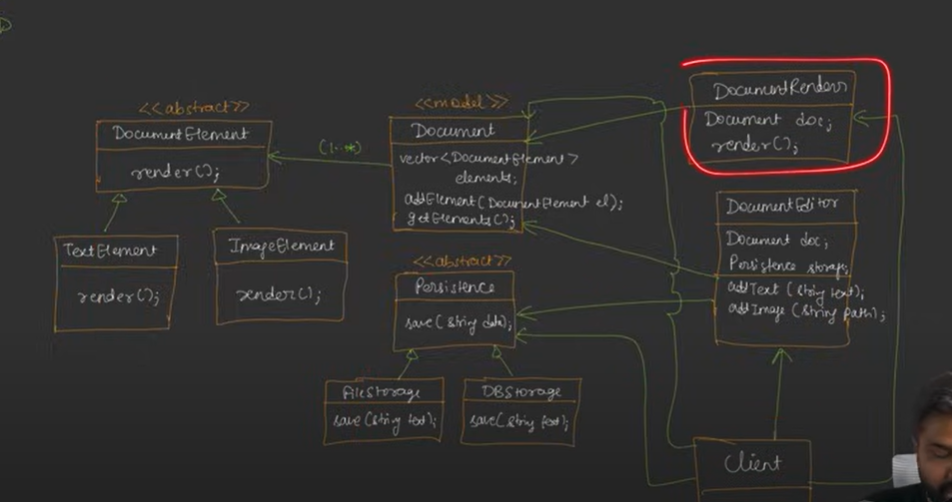 <<abstract>>
DocumentElement
render();
TextElement
render();
ImageElement
render();
(1..*)
<<model>>
Document
vector<DocumentElement>
elements;
addElement(DocumentElement el);
getElements();
<<abstract>>
Persistence
save(String data);
FileStorage
save(String text);
DBStorage
save(String text);
DocumentRender
Document doc;
render();
DocumentEditor
Document doc;
Persistence storage;
addText (String text);
addImage (String path);
Client